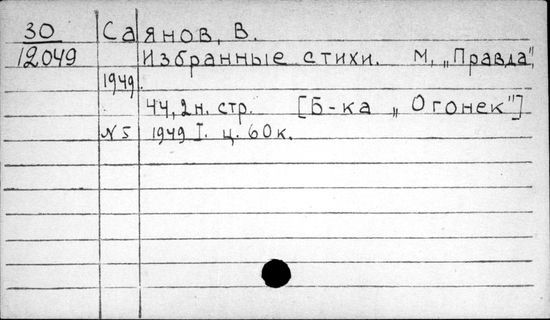 30 Саянов, В.
12049 Избранные стихи. М, „Правда”,
1949.
44, 2 н. стр. [Б-ка „Огонек”]
N 5 1949 I. ц. 60 к.